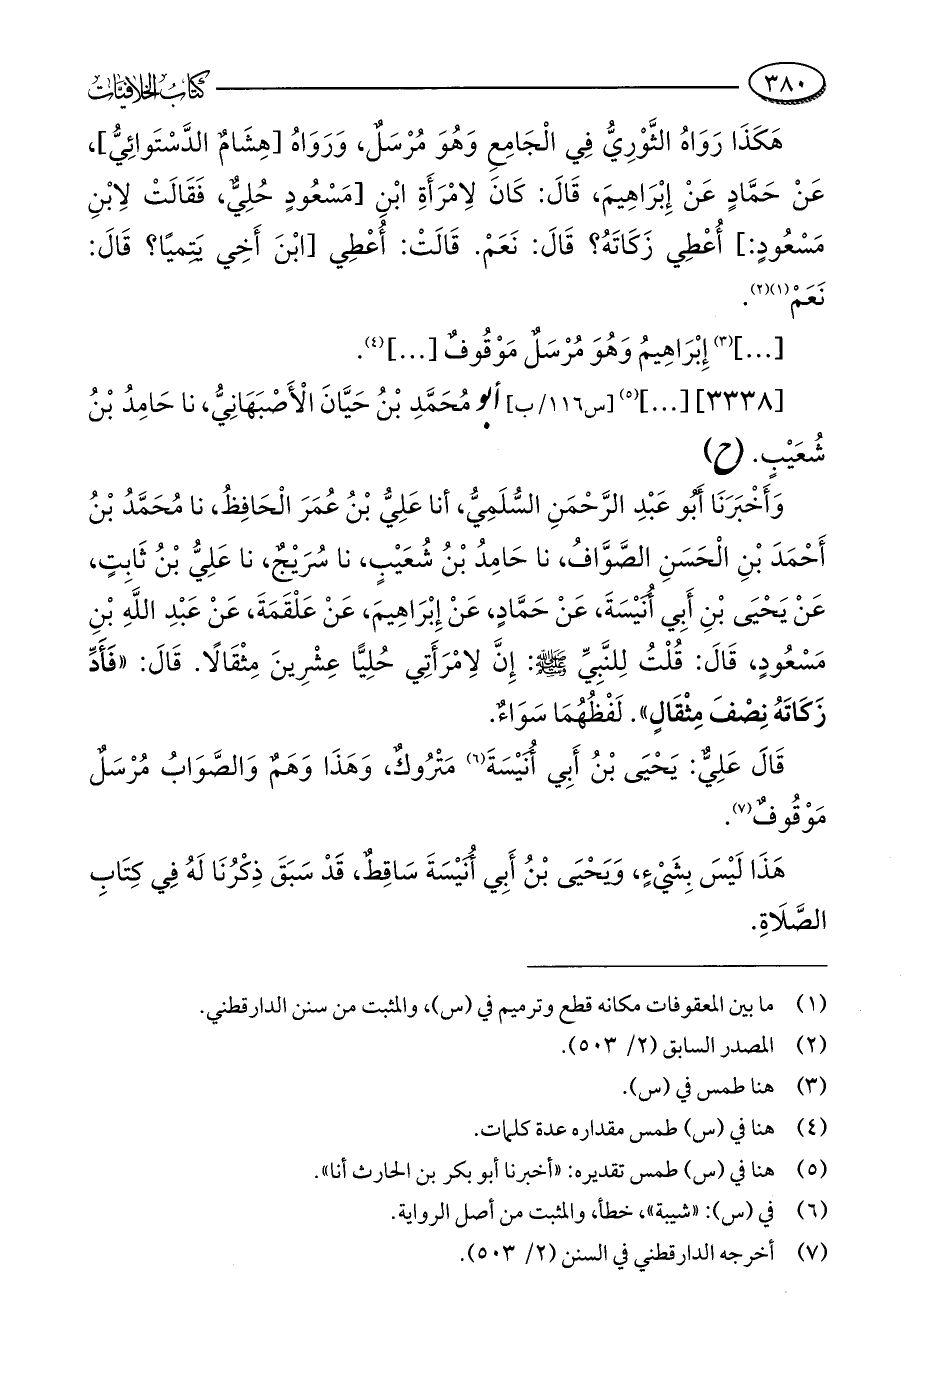 ٣٨٠
كتاب الخلافيات
هَكَذَا رَوَاهُ الثَّوْرِيُّ فِي الْجَامِعِ وَهُوَ مُرْسَلٌ، وَرَوَاهُ [هِشَامٌ الدَّسْتَوائِيُّ]،
عَنْ حَمَّادٍ عَنْ إِبْرَاهِيمَ، قَالَ: كَانَ لِامْرَأَةِ ابْنِ [مَسْعُودٍ حُلِيٌّ، فَقَالَتْ لِابْنِ
مَسْعُودٍ:] أُعْطِي زَكَاتَهُ؟ قَالَ: نَعَمْ. قَالَتْ: أُعْطِي [ابْنَ أَخِي يَتِميًا؟ قَالَ:
نَعَمْ(١)(٢).
[...](٣) إِبْرَاهِيمُ وَهُوَ مُرْسَلٌ مَوْقُوفٌ [...](٤).
[٣٣٣٨] [...](٥) [س١١٦/ب] أبو مُحَمَّدِ بْنُ حَيَّانَ الْأَصْبَهَانِيُّ، نا حَامِدُ بْنُ
شُعَيْبٍ. (ح)
وَأَخْبَرَنَا أَبُو عَبْدِ الرَّحْمَنِ السُّلَمِيُّ، أنا عَلِيُّ بْنُ عُمَرَ الْحَافِظُ، نا مُحَمَّدُ بْنُ
أَحْمَدَ بْنِ الْحَسَنِ الصَّوَّافُ، نا حَامِدُ بْنُ شُعَيْبٍ، نا سُرَيْجٌ، نا عَلِيُّ بْنُ ثَابِتٍ،
عَنْ يَحْيَى بْنِ أَبِي أُنَيْسَةَ، عَنْ حَمَّادٍ، عَنْ إِبْرَاهِيمَ، عَنْ عَلْقَمَةَ، عَنْ عَبْدِ اللَّهِ بْنِ
مَسْعُودٍ، قَالَ: قُلْتُ لِلنَّبِيِّ ﷺ: إِنَّ لِامْرَأَتِي حُلِيًّا عِشْرِينَ مِثْقَالًا. قَالَ: «فَأَدِّ
زَكَاتَهُ نِصْفَ مِثْقَالٍ». لَفْظُهُمَا سَوَاءٌ.
قَالَ عَلِيٌّ: يَحْيَى بْنُ أَبِي أُنَيْسَةَ(٦) مَتْرُوكٌ، وَهَذَا وَهَمٌ وَالصَّوَابُ مُرْسَلٌ
مَوْقُوفٌ(٧).
هَذَا لَيْسَ بِشَيْءٍ، وَيَحْيَى بْنُ أَبِي أُنَيْسَةَ سَاقِطٌ، قَدْ سَبَقَ ذِكْرُنَا لَهُ فِي كِتَابِ
الصَّلَاةِ.
(١) ما بين المعقوفات مكانه قطع وترميم في (س)، والمثبت من سنن الدارقطني.
(٢) المصدر السابق (٢/ ٥٠٣).
(٣) هنا طمس في (س).
(٤) هنا في (س) طمس مقداره عدة كلمات.
(٥) هنا في (س) طمس تقديره: «أخبرنا أبو بكر بن الحارث أنا».
(٦) في (س): «شيبة»، خطأ، والمثبت من أصل الرواية.
(٧) أخرجه الدارقطني في السنن (٢/ ٥٠٣).